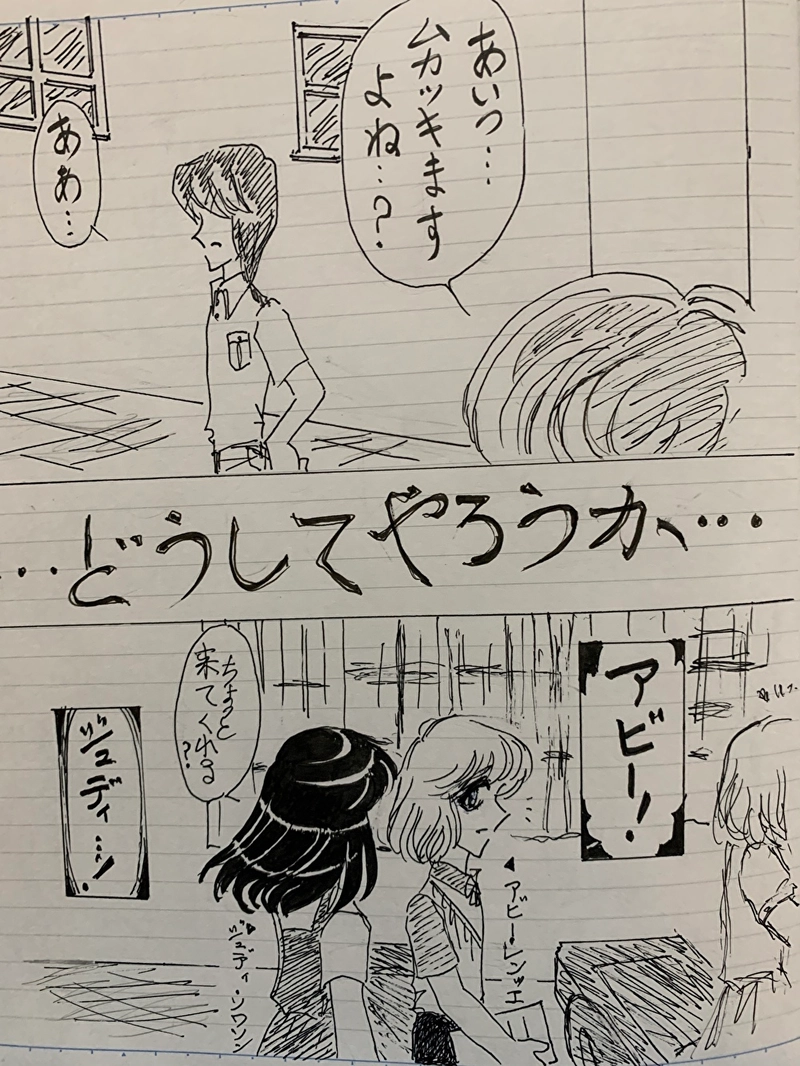 あいつ…
ムカツキます
よね…?
ああ…
…どうしてやろうか…
アビー!
ちょっと
来てくれる
?
ジュディ…!
アビー・レンツェ
ジュディ・シワソン